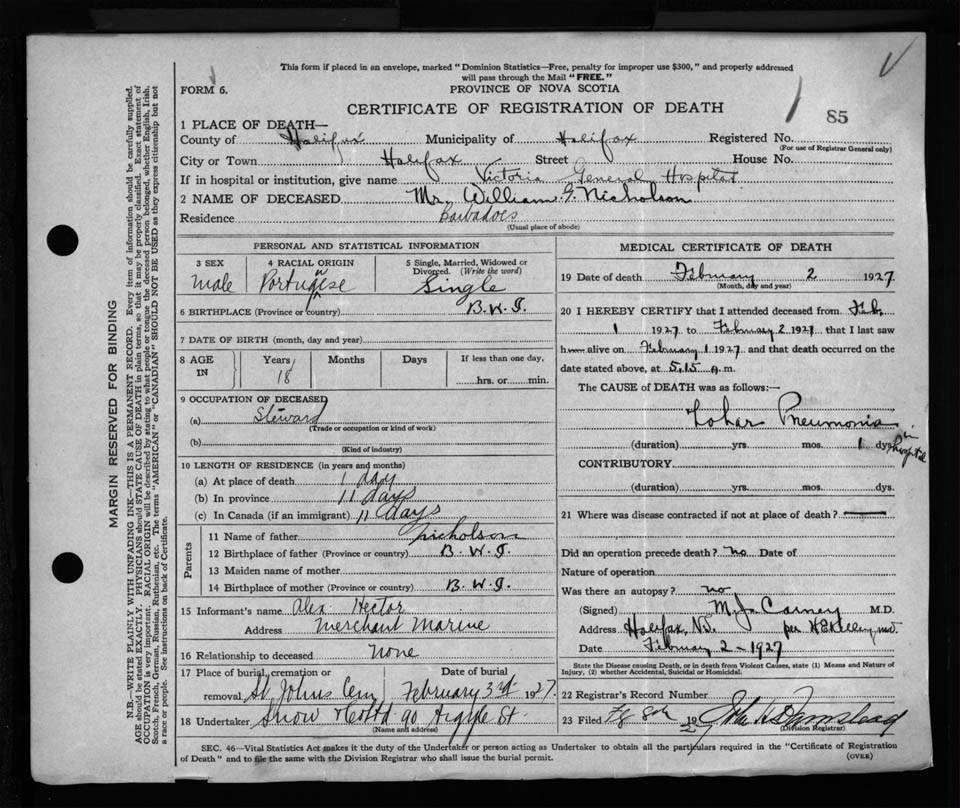 This form if placed in an envelope, marked "Dominion Statistics—Free, penalty for improper use $300," and properly addressed
will pass through the Mail "FREE."
FORM 6.
PROVINCE OF NOVA SCOTIA
CERTIFICATE OF REGISTRATION OF DEATH
85
1 PLACE OF DEATH—
County of Halifax Municipality of Halifax Registered No.
(For use of Registrar General only)
City or Town Halifax Street House No.
If in hospital or institution, give name Victoria General Hospital
2 NAME OF DECEASED Mr. William G. Nicholson
Residence Barbadoes
(Usual place of abode)
PERSONAL AND STATISTICAL INFORMATION
3 SEX
male
4 RACIAL ORIGIN
Portuguese
5 Single, Married, Widowed or
Divorced. (Write the word)
Single
6 BIRTHPLACE (Province or country) B.W.I.
7 DATE OF BIRTH (month, day and year)
8 AGE
IN
Years
18
Months
Days
If less than one day,
hrs. or min.
9 OCCUPATION OF DECEASED
(a) Steward
(Trade or occupation or kind of work)
(b)
(Kind of industry)
10 LENGTH OF RESIDENCE (in years and months)
(a) At place of death 1 day
(b) In province 11 days
(c) In Canada (if an immigrant) 11 days
Parents
11 Name of father Nicholson
12 Birthplace of father (Province or country) B.W.I.
13 Maiden name of mother
14 Birthplace of mother (Province or country) B.W.I.
15 Informant's name Alex Hector
Address Merchant Marine
16 Relationship to deceased none
17 Place of burial, cremation or removal St. Johns Cem
Date of burial
February 3rd 1927.
18 Undertaker Snow & Co Ltd 90 Argyle St.
(Name and address)
MEDICAL CERTIFICATE OF DEATH
19 Date of death February 2 1927.
(Month, day and year)
20 I HEREBY CERTIFY that I attended deceased from Feb.
1 1927 to February 2 1927 that I last saw
him alive on February 1 1927 and that death occurred on the
date stated above, at 5.15 a.m.
The CAUSE of DEATH was as follows:—
Lobar Pneumonia
(duration) yrs. mos. 1 dys. in hospital
CONTRIBUTORY
(duration) yrs. mos. dys.
21 Where was disease contracted if not at place of death?
Did an operation precede death? no Date of
Nature of operation
Was there an autopsy? no
(Signed) M.J. Carney M.D.
Address Halifax, N.S. per
Date February 2-1927
State the Disease causing Death, or in death from Violent Causes, state (1) Means and Nature of
Injury, (2) whether Accidental, Suicidal or Homicidal.
22 Registrar's Record Number
23 Filed 8th 192
(Division Registrar)
SEC. 46—Vital Statistics Act makes it the duty of the Undertaker or person acting as Undertaker to obtain all the particulars required in the "Certificate of Registration
of Death" and to file the same with the Division Registrar who shall issue the burial permit.
(OVER)
MARGIN RESERVED FOR BINDING
N.B.—WRITE PLAINLY WITH UNFADING INK—THIS IS A PERMANENT RECORD. Every item of information should be carefully supplied.
AGE should be stated EXACTLY. PHYSICIANS should STATE CAUSE OF DEATH in plain terms, so that it may be properly classified. Exact statement of
OCCUPATION is very important. RACIAL ORIGIN will be described by stating to what people or tongue the deceased person belonged, whether English, Irish,
Scotch, French, German, Russian, Ruthenian, etc. The terms "AMERICAN" or "CANADIAN" SHOULD NOT BE USED as they express citizenship but not
a race or people. See instructions on back of Certificate.